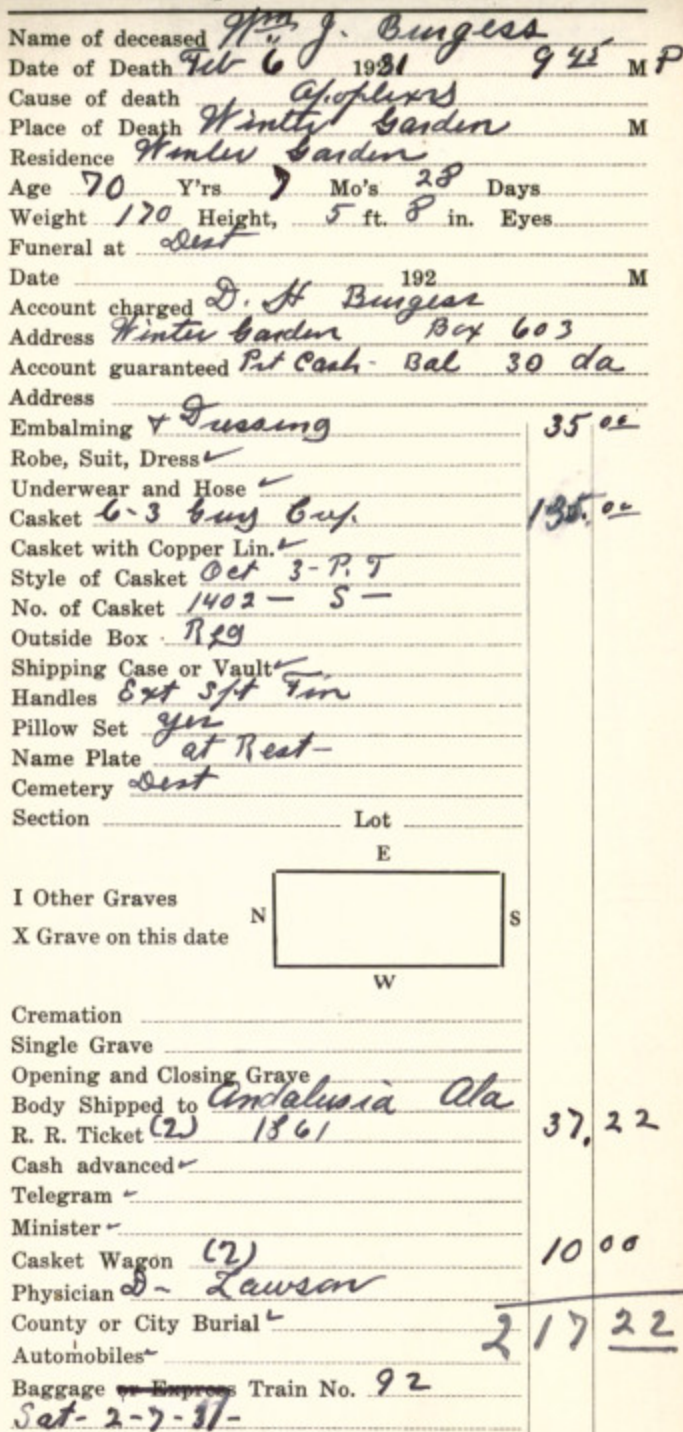 Name of deceased Wm J. Burgess
Date of Death Feb 6 1931 9 45 M P
Cause of death Apoplexrs
Place of Death Winter Garden M
Residence Winter Garden
Age 70 Y'rs 7 Mo's 28 Days
Weight 170 Height, 5 ft. 8 in. Eyes
Funeral at Dest
Date 192 M
Account charged D. H Burgess
Address Winter Garden Box 603
Account guaranteed Prt Cash - Bal 30 da
Address
Embalming & Dressing 35 00
Robe, Suit, Dress ✓
Underwear and Hose ✓
Casket 6-3 Crp. 135. 00
Casket with Copper Lin. ✓
Style of Casket Oct 3-P. T
No. of Casket 1402 - S -
Outside Box Rfg
Shipping Case or Vault ✓
Handles Ext Sft Tin
Pillow Set yes
Name Plate at Rest -
Cemetery Dest
Section Lot
E
I Other Graves
N S
X Grave on this date
W
Cremation
Single Grave
Opening and Closing Grave
Body Shipped to Andalusia Ala
R. R. Ticket (2) 1861 37. 22
Cash advanced ✓
Telegram ✓
Minister ✓
Casket Wagon (2) 10 00
Physician D - Lawson
County or City Burial ✓ 217 22
Automobiles ✓
Baggage or Express Train No. 92
Sat - 2-7-31 -